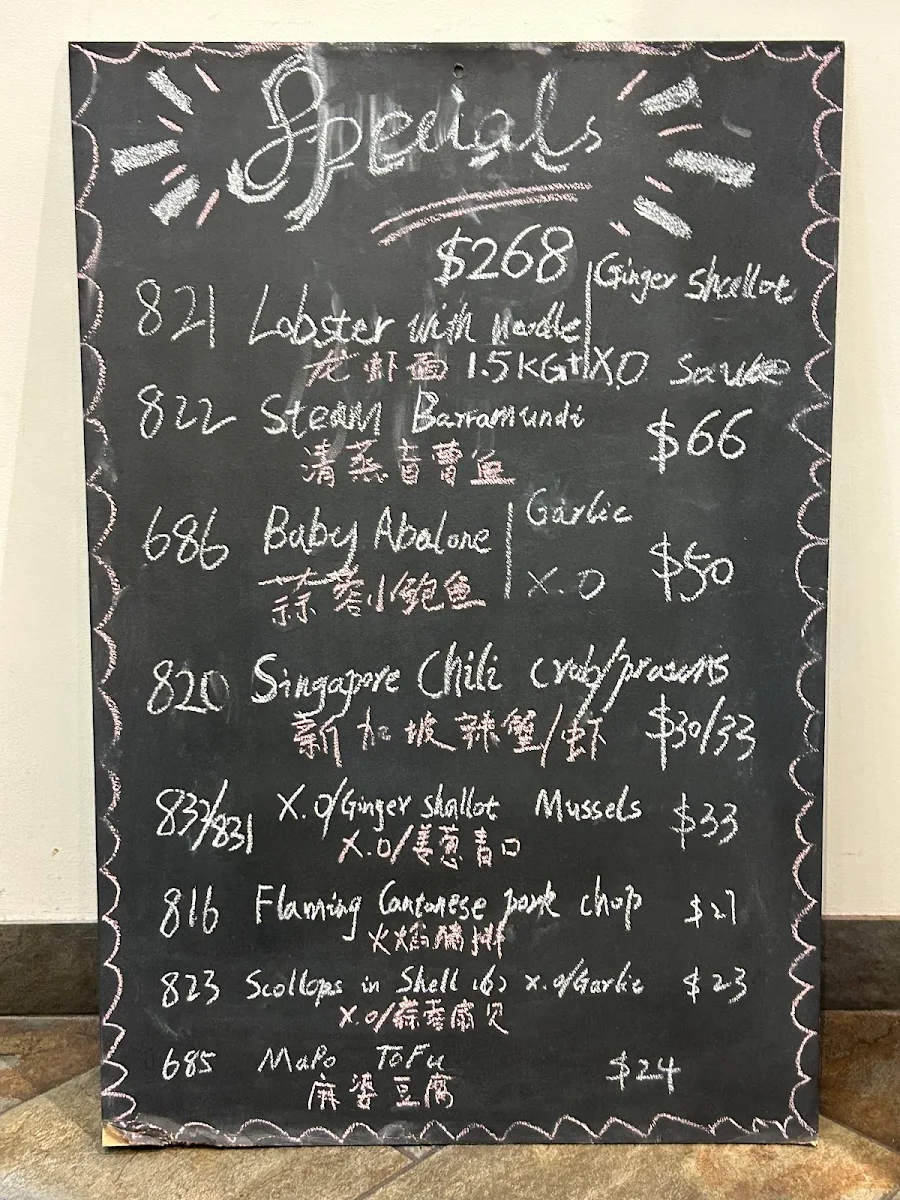 Specials
$268
821 Lobster with noodle | Ginger shallot
龙虾面 1.5KG+ | XO Sauce
822 Steam Barramundi $66
清蒸盲曹鱼
686 Baby Abalone | Garlic $50
蒜蓉小鲍鱼 | X.O
820 Singapore Chili crab/prawns
新加坡辣蟹/虾 $30/33
832/831 X.O/Ginger shallot Mussels $33
X.O/姜葱青口
816 Flaming Cantonese pork chop $27
火焰排
823 Scollops in Shell (6) X.O/Garlic $23
X.O/蒜蓉扇贝
685 MaPo ToFu $24
麻婆豆腐